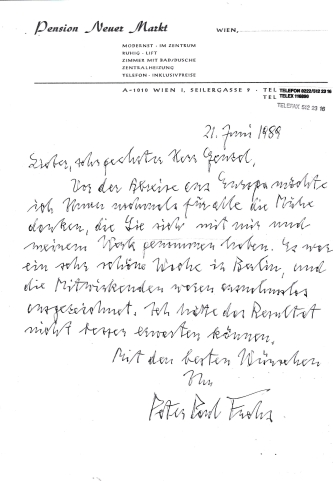 Pension Neuer Markt
WIEN,
MODERNST - IM ZENTRUM
RUHIG - LIFT
ZIMMER MIT BAD/DUSCHE
ZENTRALHEIZUNG
TELEFON - INKLUSIVPREISE
A-1010 WIEN I, SEILERGASSE 9 · TEL TELEFON 0222/512 23 16
TEL TELEX
TELEFAX 512 23 16
21. Juni 1989
Lieber, sehr geehrter Herr
Vor der Abreise aus Europa möchte
ich Ihnen nochmals für alle die Mühe
danken, die Sie sich mit mir und
meinem Werk genommen haben. Es war
ein sehr schöne Woche in Berlin, und
die Mitwirkenden waren
ausgezeichnet. Ich hätte das Resultat
nicht besser erwarten können.
Mit den besten Wünschen
Ihr
Peter Paul Fuchs